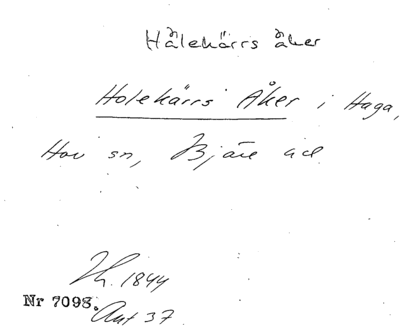 Hålekärrs åker
Holekärrs Åker i Haga,
Hov sn, Bjäre hd
1844
Nr 7098.
Akt 37